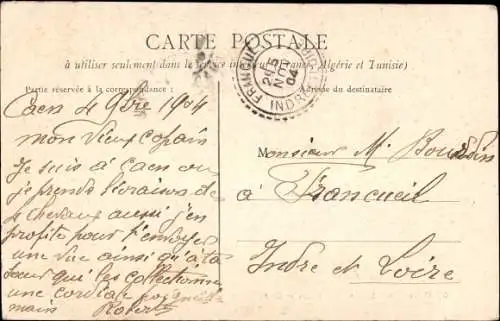 CARTE POSTALE
à utiliser seulement dans le service intérieur (France, Algérie et Tunisie)
Partie réservée à la correspondance
Adresse du destinataire
FRANCUEIL
5
NOV
04
INDRE
Caen 4 9bre 1904
mon vieux copain
Je suis à Caen ou
je prends livraison de
4 chevaux aussi j'en
profite pour t'envoyer
une vue ainsi qu'à ta
sœur qui les collectionne
une cordiale poignée de
main Robert
Monsieur M. Bourdin
à Francueil
Indre et Loire